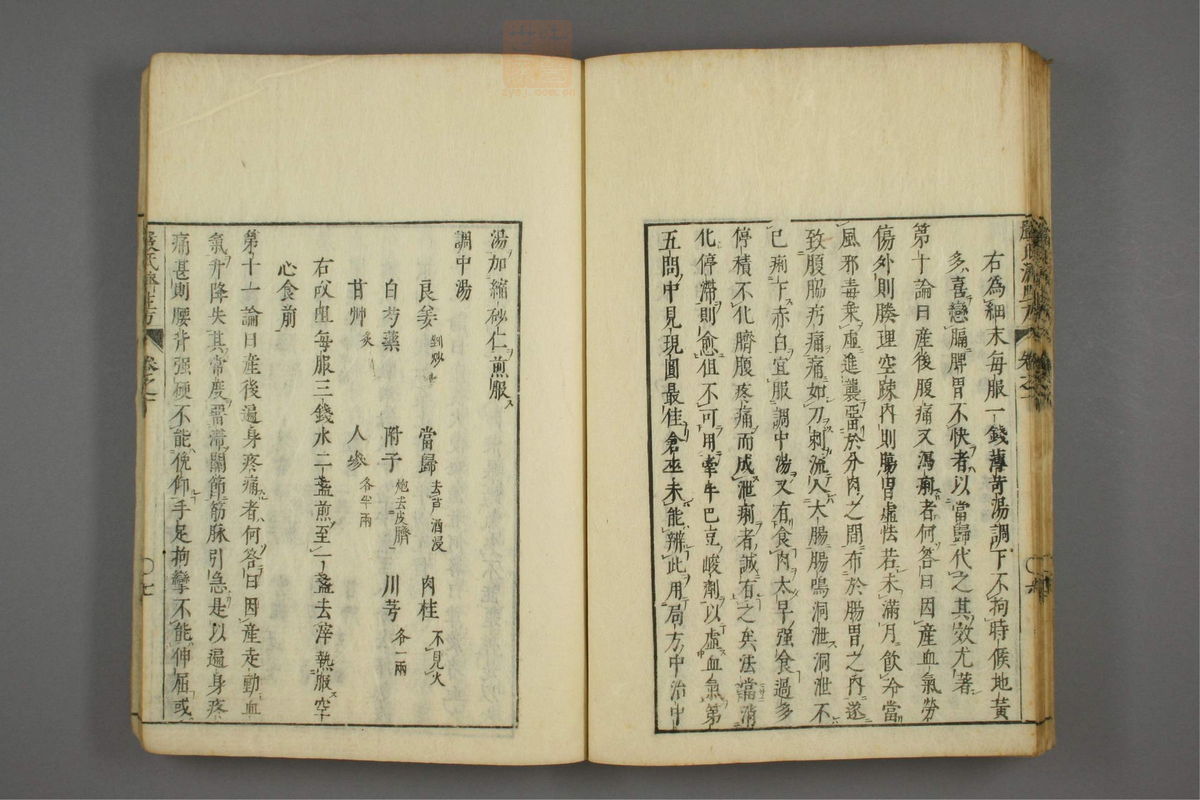 右為細末每服一錢薄荷湯調下不拘時候地黃
多喜戀膈脾胃不快者以當歸代之其效尤著
第十論曰產後腹痛又瀉痢者何答曰因產血氣勞
傷外則腠理空疎內則腸胃虛怯若未滿月飲冷當
風邪毒乘虛進襲留於分肉之間布於腸胃之內遂
致腹脇疞痛痛如刀刺流入大腸腸鳴洞泄洞泄不
已痢下赤白宜服調中湯又有食肉太早强食過多
停積不化臍腹疼痛而成泄痢者誠有之矣法當消
化停滯則愈但不可用牽牛巴豆峻劑以虛血氣第
五問中見晛圓最佳倉巫未能辨此用局方中治中
嚴氏濟生方 卷之 〇
湯加縮砂仁煎服
調中湯
良姜 剉炒 當歸 去芦酒浸 肉桂 不見火
白芍藥 附子 炮去皮臍 川芎 各一兩
甘艸 炙 人參 各半兩
右㕮咀每服三錢水二盞煎至一盞去滓熱服空
心食前
第十一論曰產後遍身疼痛者何答曰因產走動血
氣升降失其常度留滯關節筋脉引急是以遍身疼
痛甚則腰背强硬不能俛仰手足拘攣不能伸屈或
嚴氏濟生方 卷之 〇七